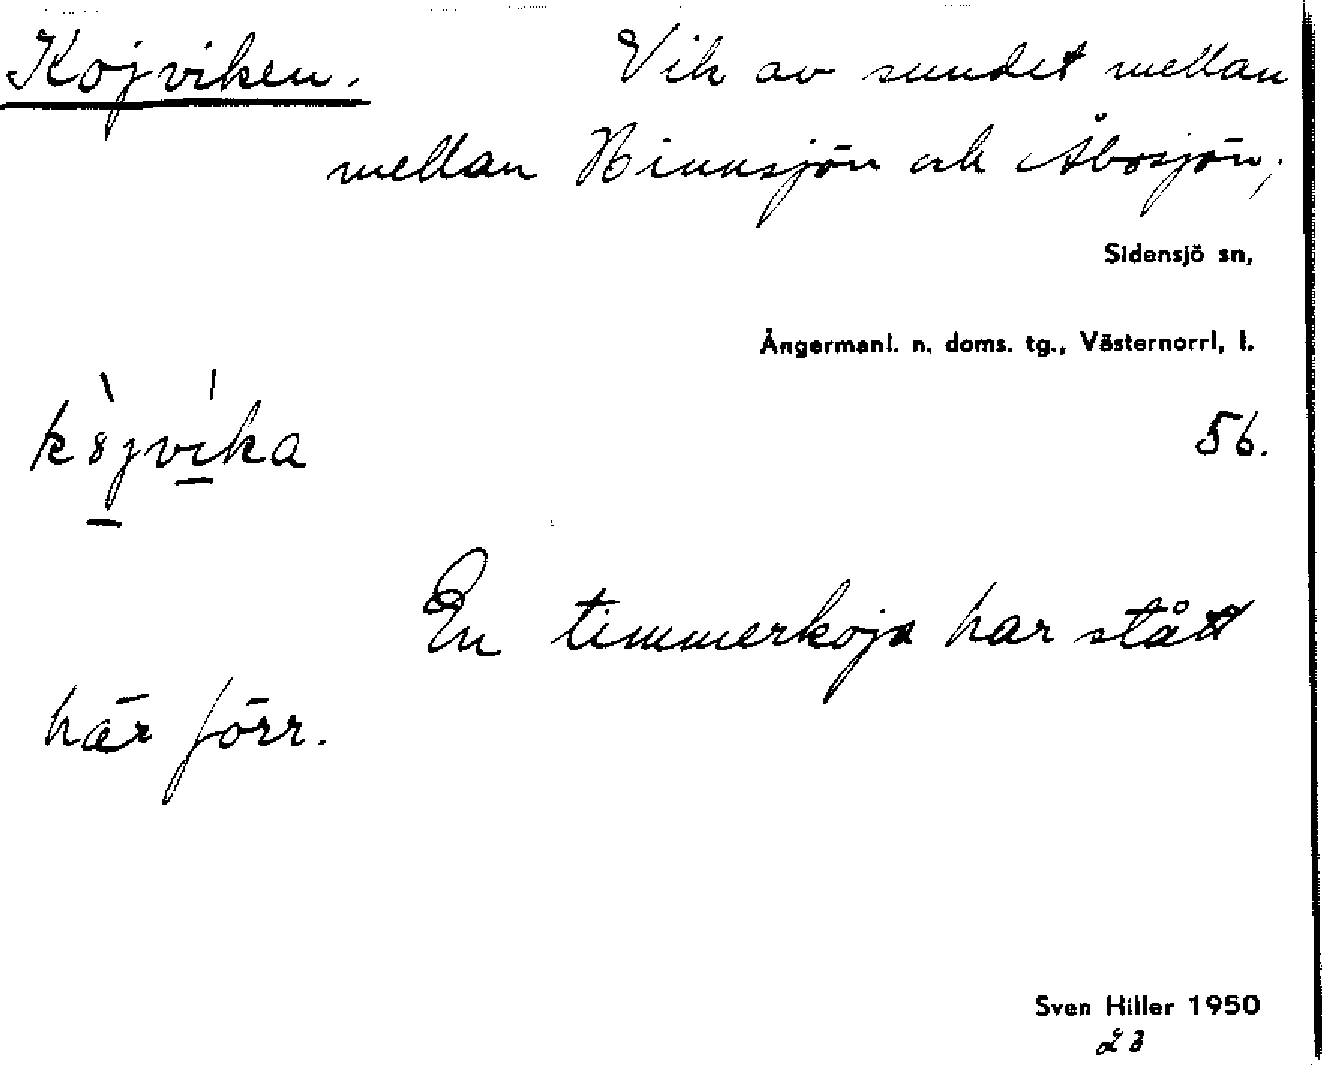 Kojviken. Vik av sundet mellan
mellan Hinnsjön och Åbosjön,
Sidensjö sn,
Ångermanl. n. doms. tg., Västernorrl, l.
56.
En timmerkoja har stått
här förr.
Sven Hiller 1950
23